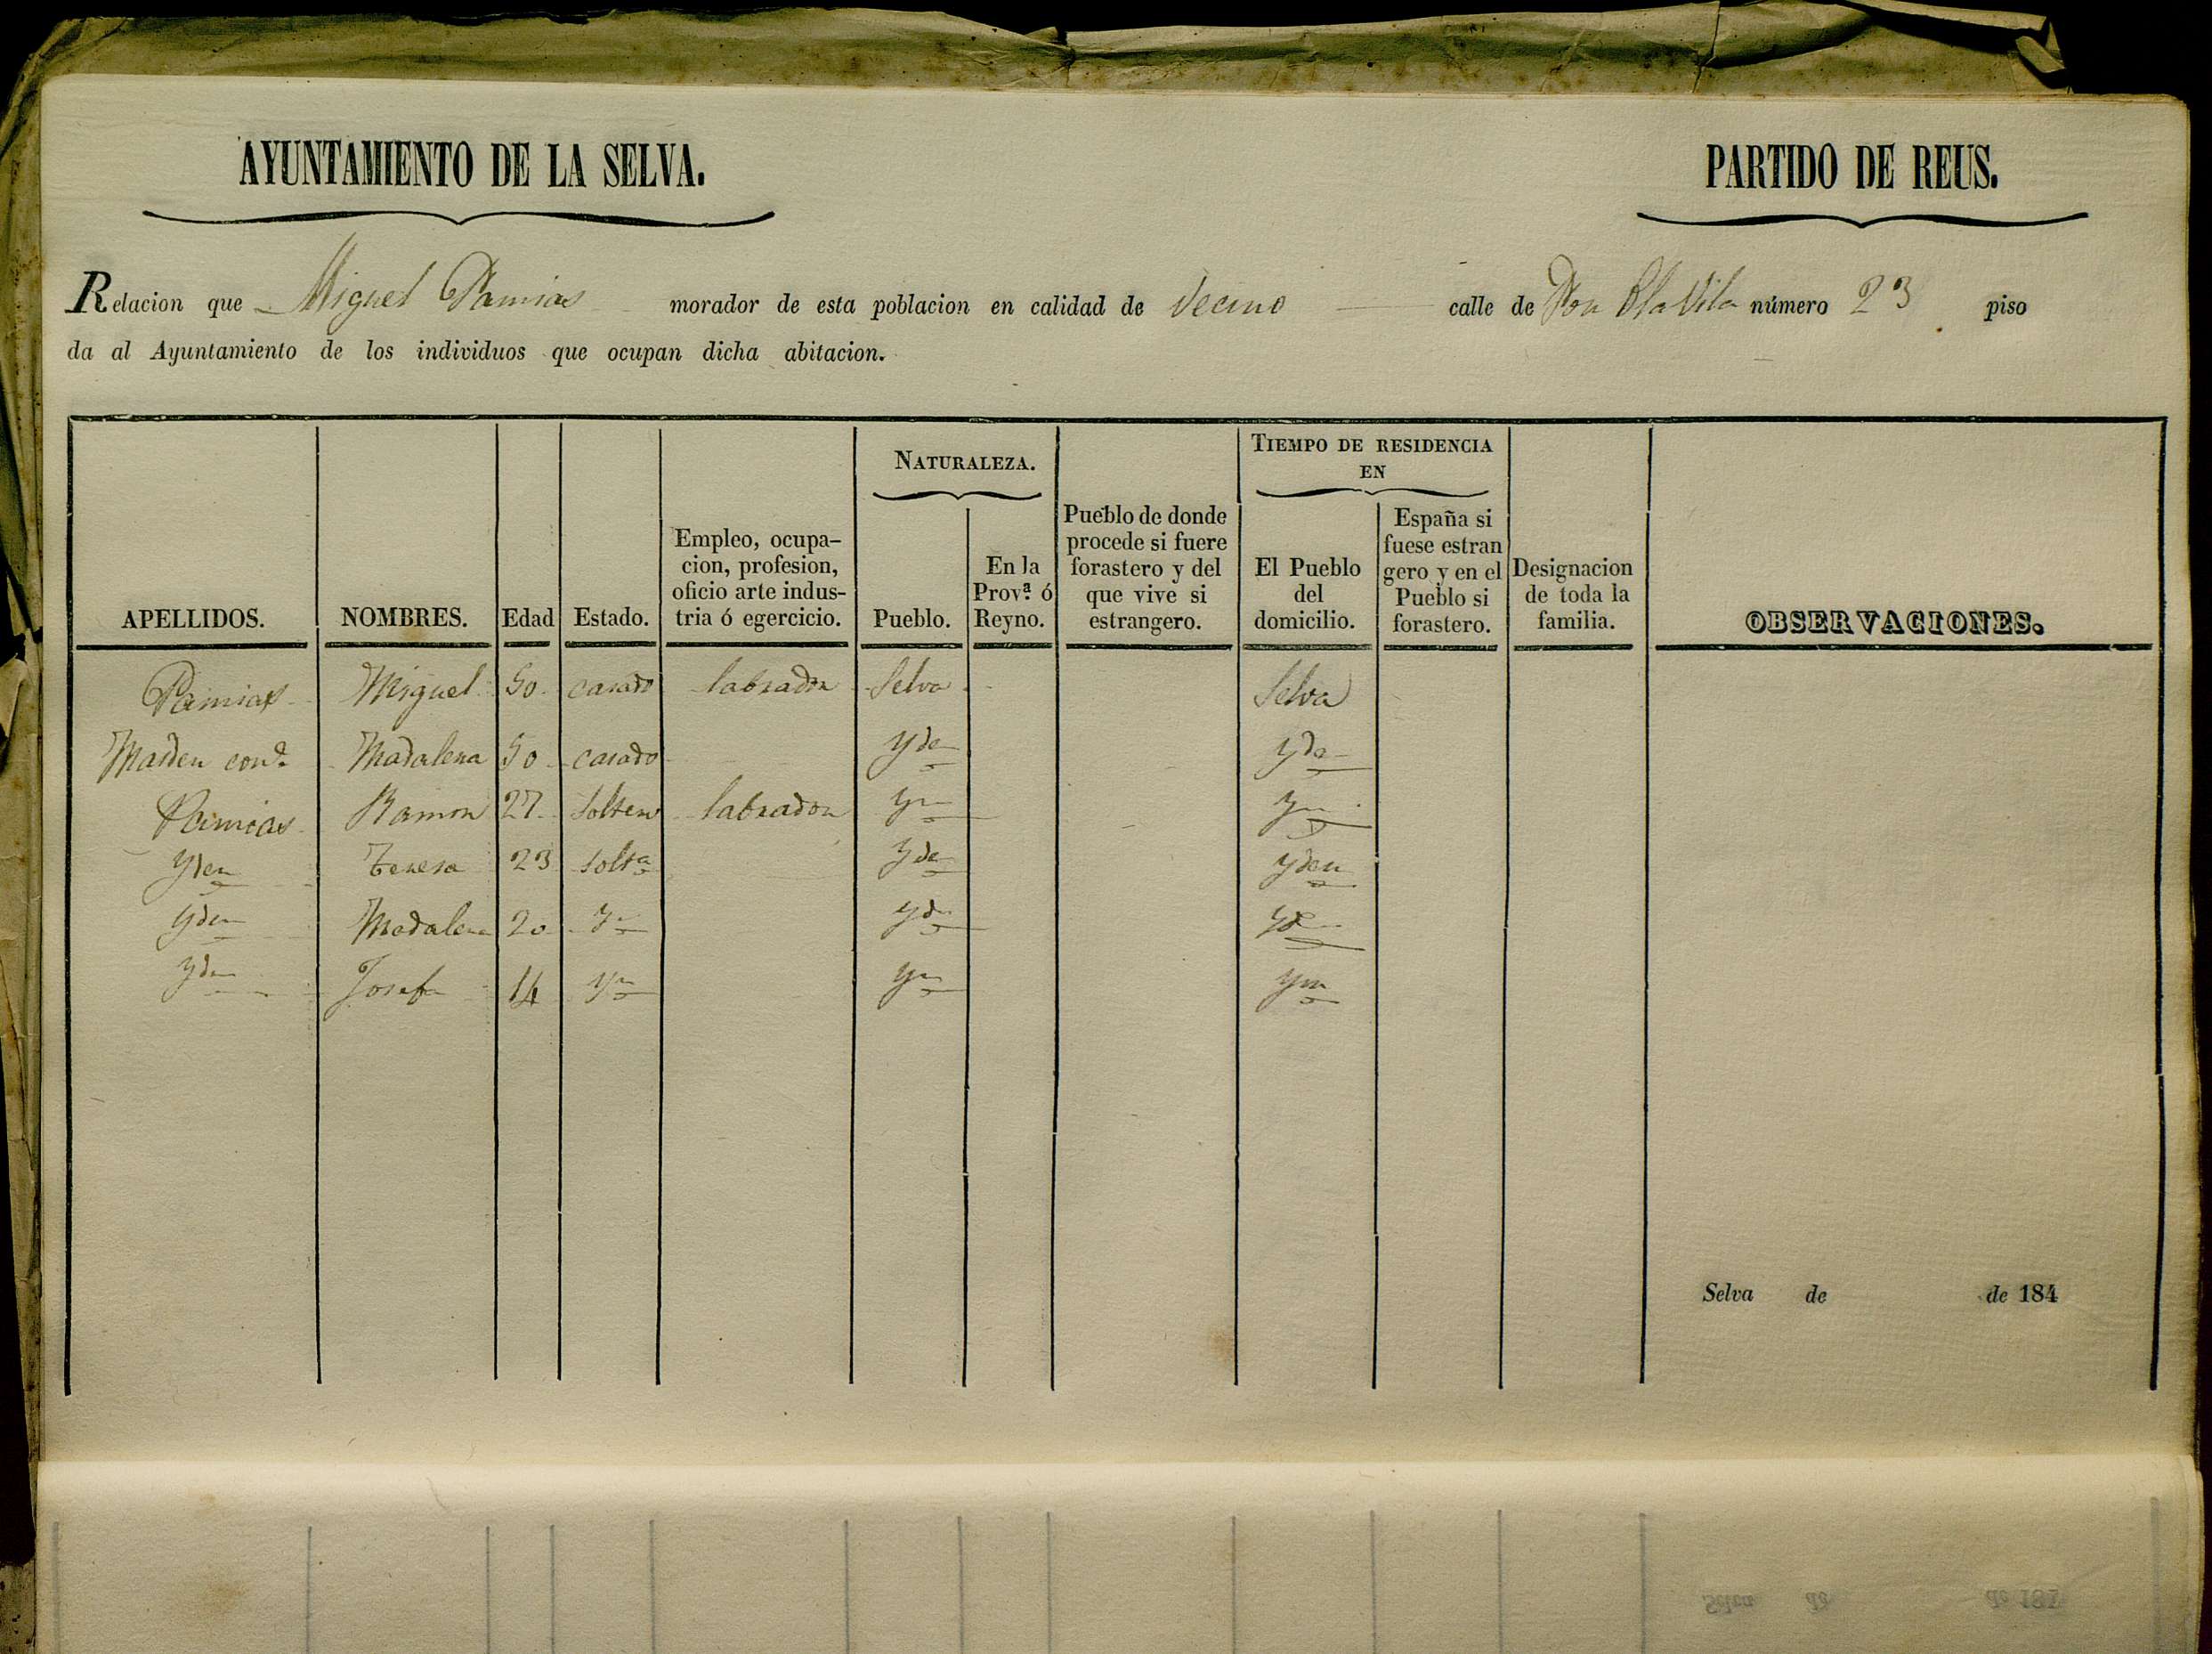 AYUNTAMIENTO DE LA SELVA.
PARTIDO DE REUS.
Relacion que Miguel Pamias morador de esta poblacion en calidad de Vecino calle de Vila número 23 piso
da al Ayuntamiento de los individuos que ocupan dicha abitacion.
NATURALEZA.
TIEMPO DE RESIDENCIA EN
APELLIDOS.
NOMBRES.
Edad
Estado.
Empleo, ocupa-
cion, profesion,
oficio arte indus-
tria ó egercicio.
Pueblo.
En la
Prov.ª ó
Reyno.
Pueblo de donde
procede si fuere
forastero y del
que vive si
estrangero.
El Pueblo
del
domicilio.
España si
fuese estran
gero y en el
Pueblo si
forastero.
Designacion
de toda la
familia.
OBSERVACIONES.
Pamias Miguel 50 casado labrador Selva Selva
Madalena 50 casado yde yde
Pamias Ramon 27 soltero labrador ym ym
yden Teresa 23 solta yde yden
yden Madalena 20 ym ydm yd
ydm Josefa 14 ym ym ym
Selva de de 184